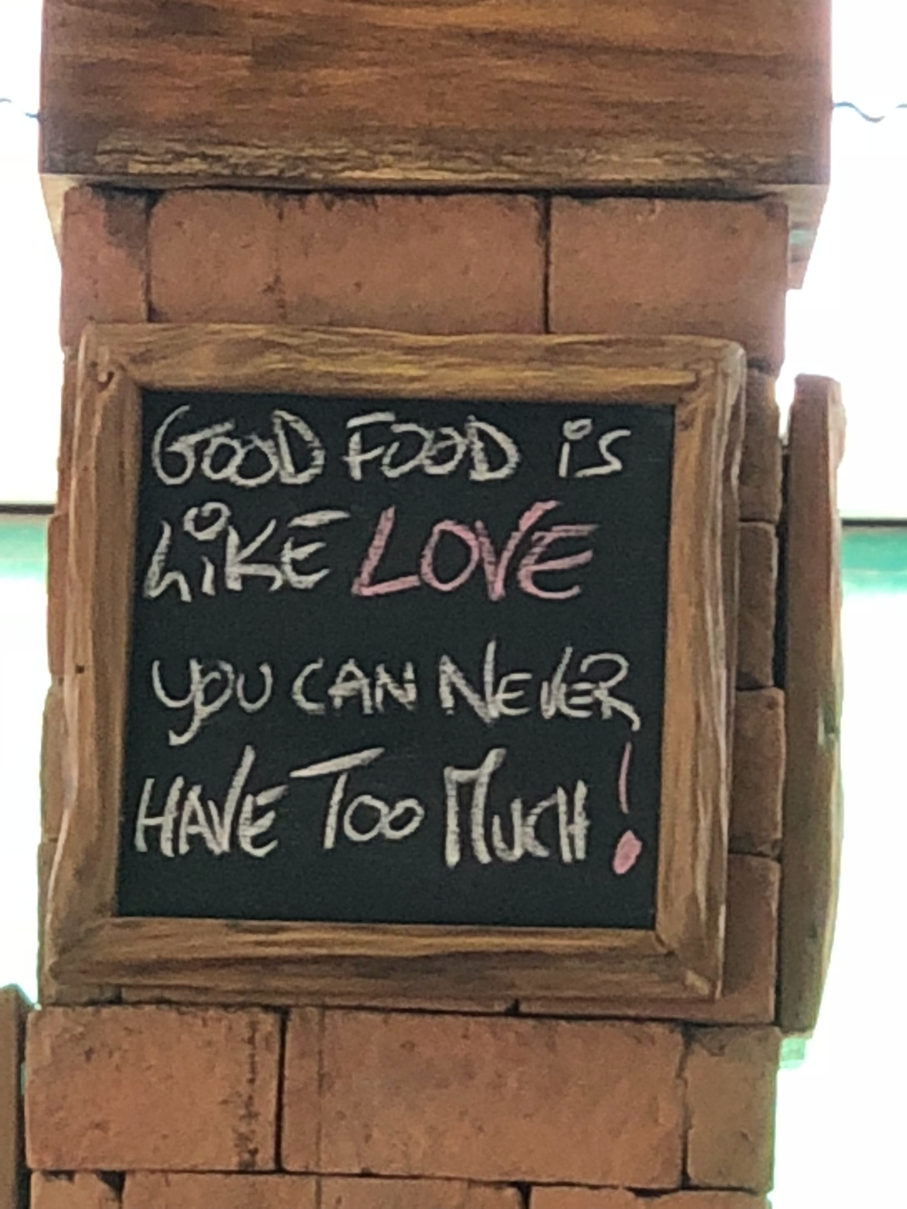 GOOD FOOD iS
LiKE LOVE
YOU CAN NEVER
HAVE TOO MUCH!